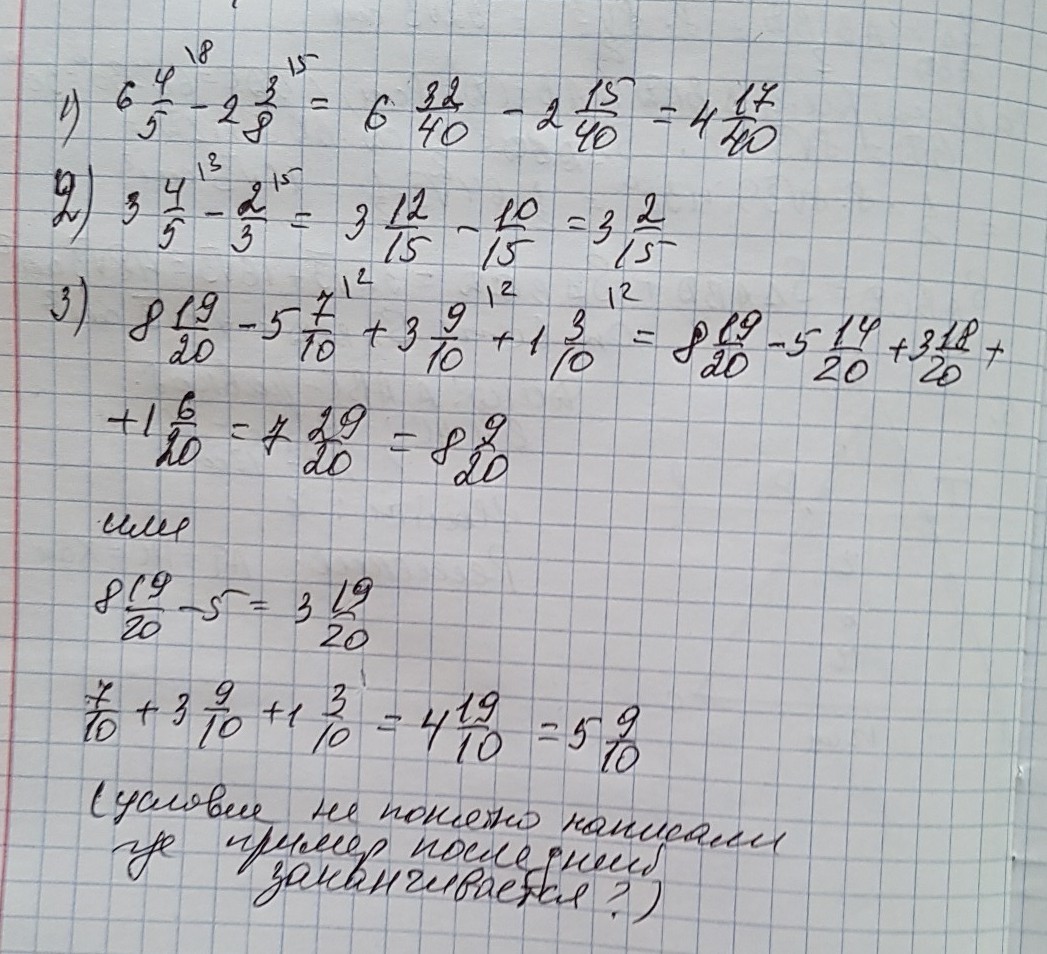 1) 6 4/5 \8 - 2 3/8 \5 = 6 32/40 - 2 15/40 = 4 17/40
2) 3 4/5 \3 - 2/3 \5 = 3 12/15 - 10/15 = 3 2/15
3) 8 19/20 - 5 7/10 \2 + 3 9/10 \2 + 1 3/10 \2 = 8 19/20 - 5 14/20 + 3 18/20 +
+ 1 6/20 = 7 29/20 = 8 9/20
или
8 19/20 - 5 = 3 19/20
7/10 + 3 9/10 + 1 3/10 = 4 19/10 = 5 9/10
(условие не понятно написали
где пример последний
заканчивается?)